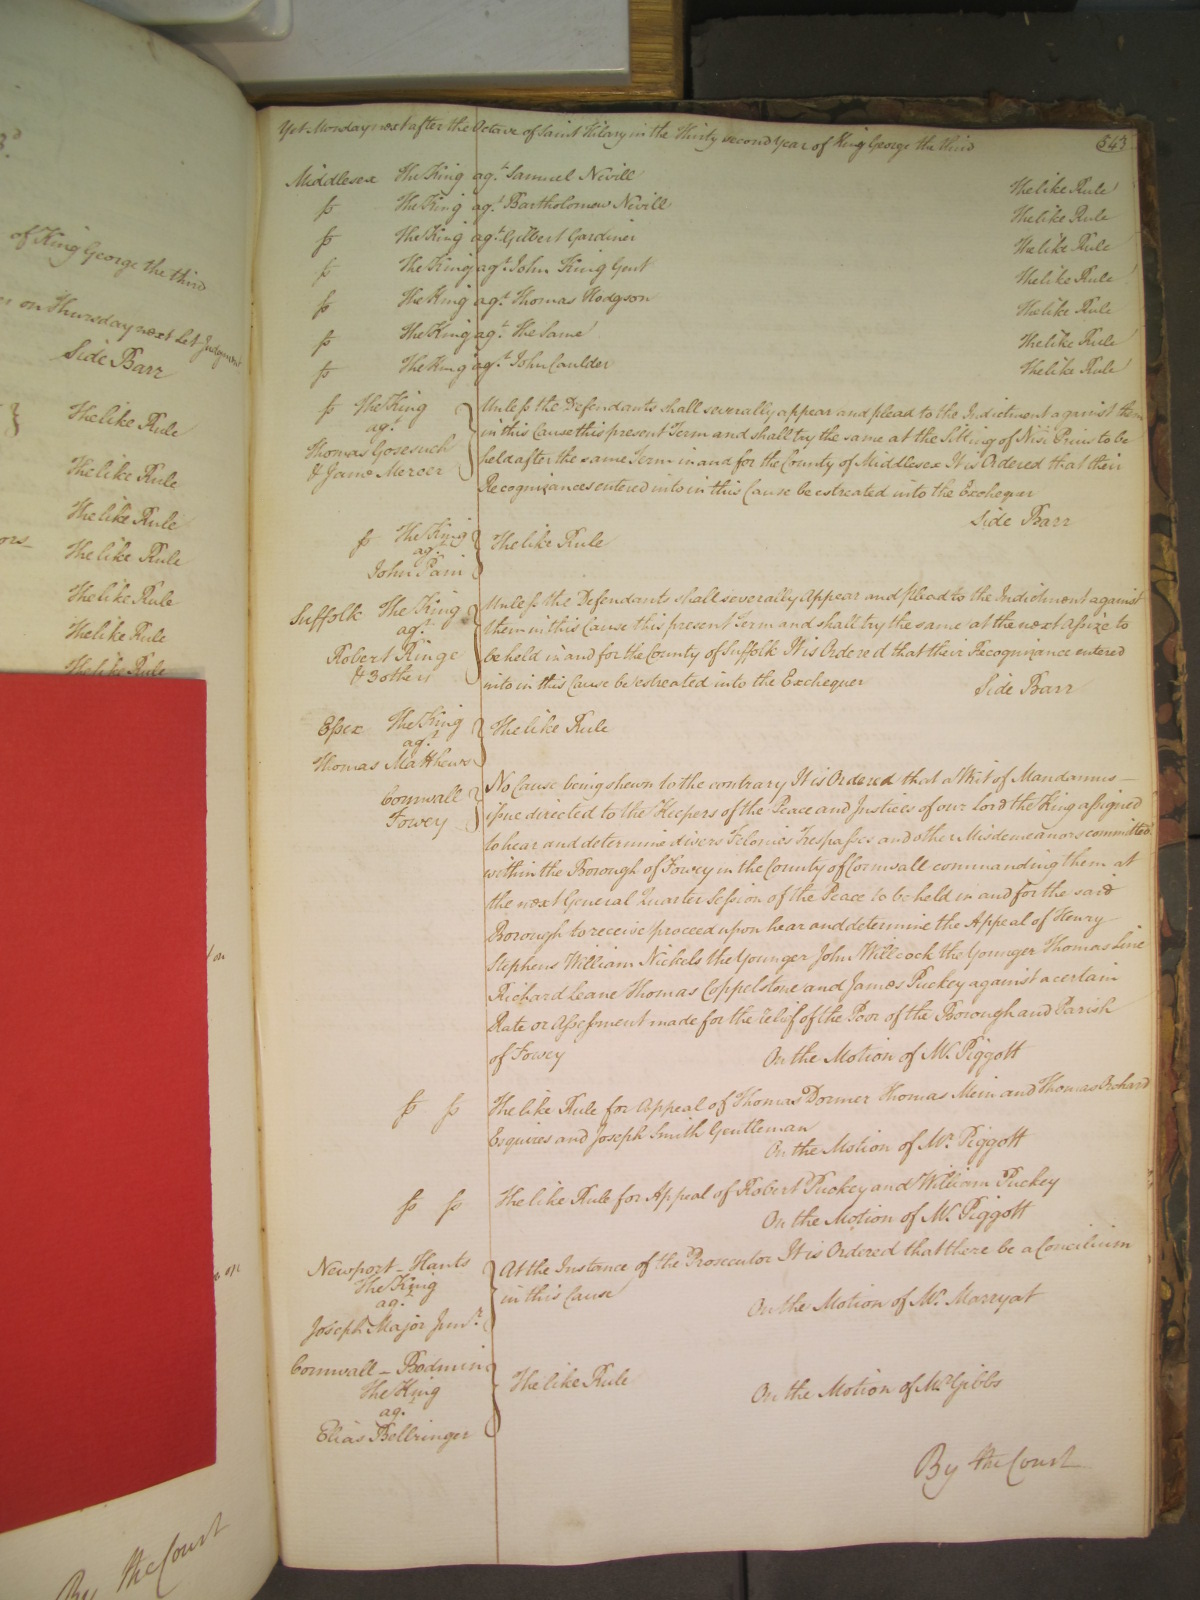 of King George the third
on Thursday next Let Judgment
Side Barr
The like Rule
The like Rule
The like Rule
The like Rule
The like Rule
The like Rule
The like Rule
By the Court
Yet Monday next after the Octave of Saint Hilary in the Thirty second Year of King George the third
543
Middlesex The King ag.t Samuel Nevill The like Rule
ss The King ag.t Bartholomew Nevill The like Rule
ss The King ag.t Gilbert Gardiner The like Rule
ss The King ag.t John King Gent The like Rule
ss The King ag.t Thomas Hodgson The like Rule
ss The King ag.t the Same The like Rule
ss The King ag.t John Caulder The like Rule
ss The King
ag.t
Thomas Gosesuch
& James Mercer
Unless the Defendants shall severally appear and plead to the Indictment against them
in this Cause this present Term and shall try the same at the Sitting of Nisi Prius to be
held after the same Term in and for the County of Middlesex It is Ordered that their
Recognizances entered into in this Cause be estreated into the Exchequer
Side Barr
ss The King
ag.t
John Pain
The like Rule
Suffolk The King
ag.t
Robert Ringe
& 3 others
Unless the Defendants shall severally Appear and plead to the Indictment against
them in this Cause this present Term and shall try the same at the next Assize to
be held in and for the County of Suffolk It is Ordered that their Recognizance entered
into in this Cause be estreated into the Exchequer Side Barr
Essex The King
ag.t
Thomas Matthews
The like Rule
Cornwall
Fowey
No Cause being shewn to the contrary It is Ordered that a Writ of Mandamus
issue directed to the Keepers of the Peace and Justices of our Lord the King assigned
to hear and determine divers Felonies Trespasses and other Misdemeanors committed
within the Borough of Fowey in the County of Cornwall commanding them at
the next General Quarter Session of the Peace to be held in and for the said
Borough to receive proceed upon hear and determine the Appeal of Henry
Stephens William Nickels the Younger John Willcock the Younger Thomas Line
Richard Leane Thomas Coppelstone and James Puckey against a certain
Rate or Assessment made for the relief of the Poor of the Borough and Parish
of Fowey On the Motion of Mr. Piggott
ss ss The like Rule for Appeal of Thomas Dormer Thomas Mein and Thomas Orchard
Esquires and Joseph Smith Gentleman
On the Motion of Mr. Piggott
ss ss The like Rule for Appeal of Robert Puckey and William Puckey
On the Motion of Mr. Piggott
Newport – Hants
The King
ag.t
Joseph Major Jun.r
At the Instance of the Prosecutor It is Ordered that there be a Concilium
in this Cause
On the Motion of Mr. Marryat
Cornwall – Bodmin
The King
ag.t
Elias Bellringer
The like Rule
On the Motion of Mr. Gibbs
By the Court